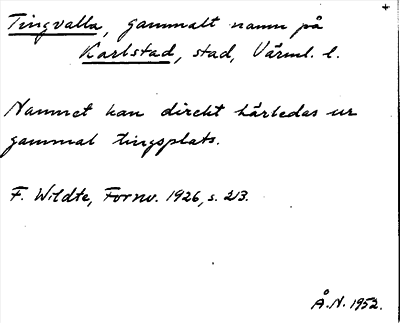 Tingvalla, gammalt namn på
Karlstad, stad, Värml. l.
Namnet kan direkt härledas ur
gammal tingsplats.
F. Wildte, Fornv. 1926, s. 213.
Å.N. 1952.